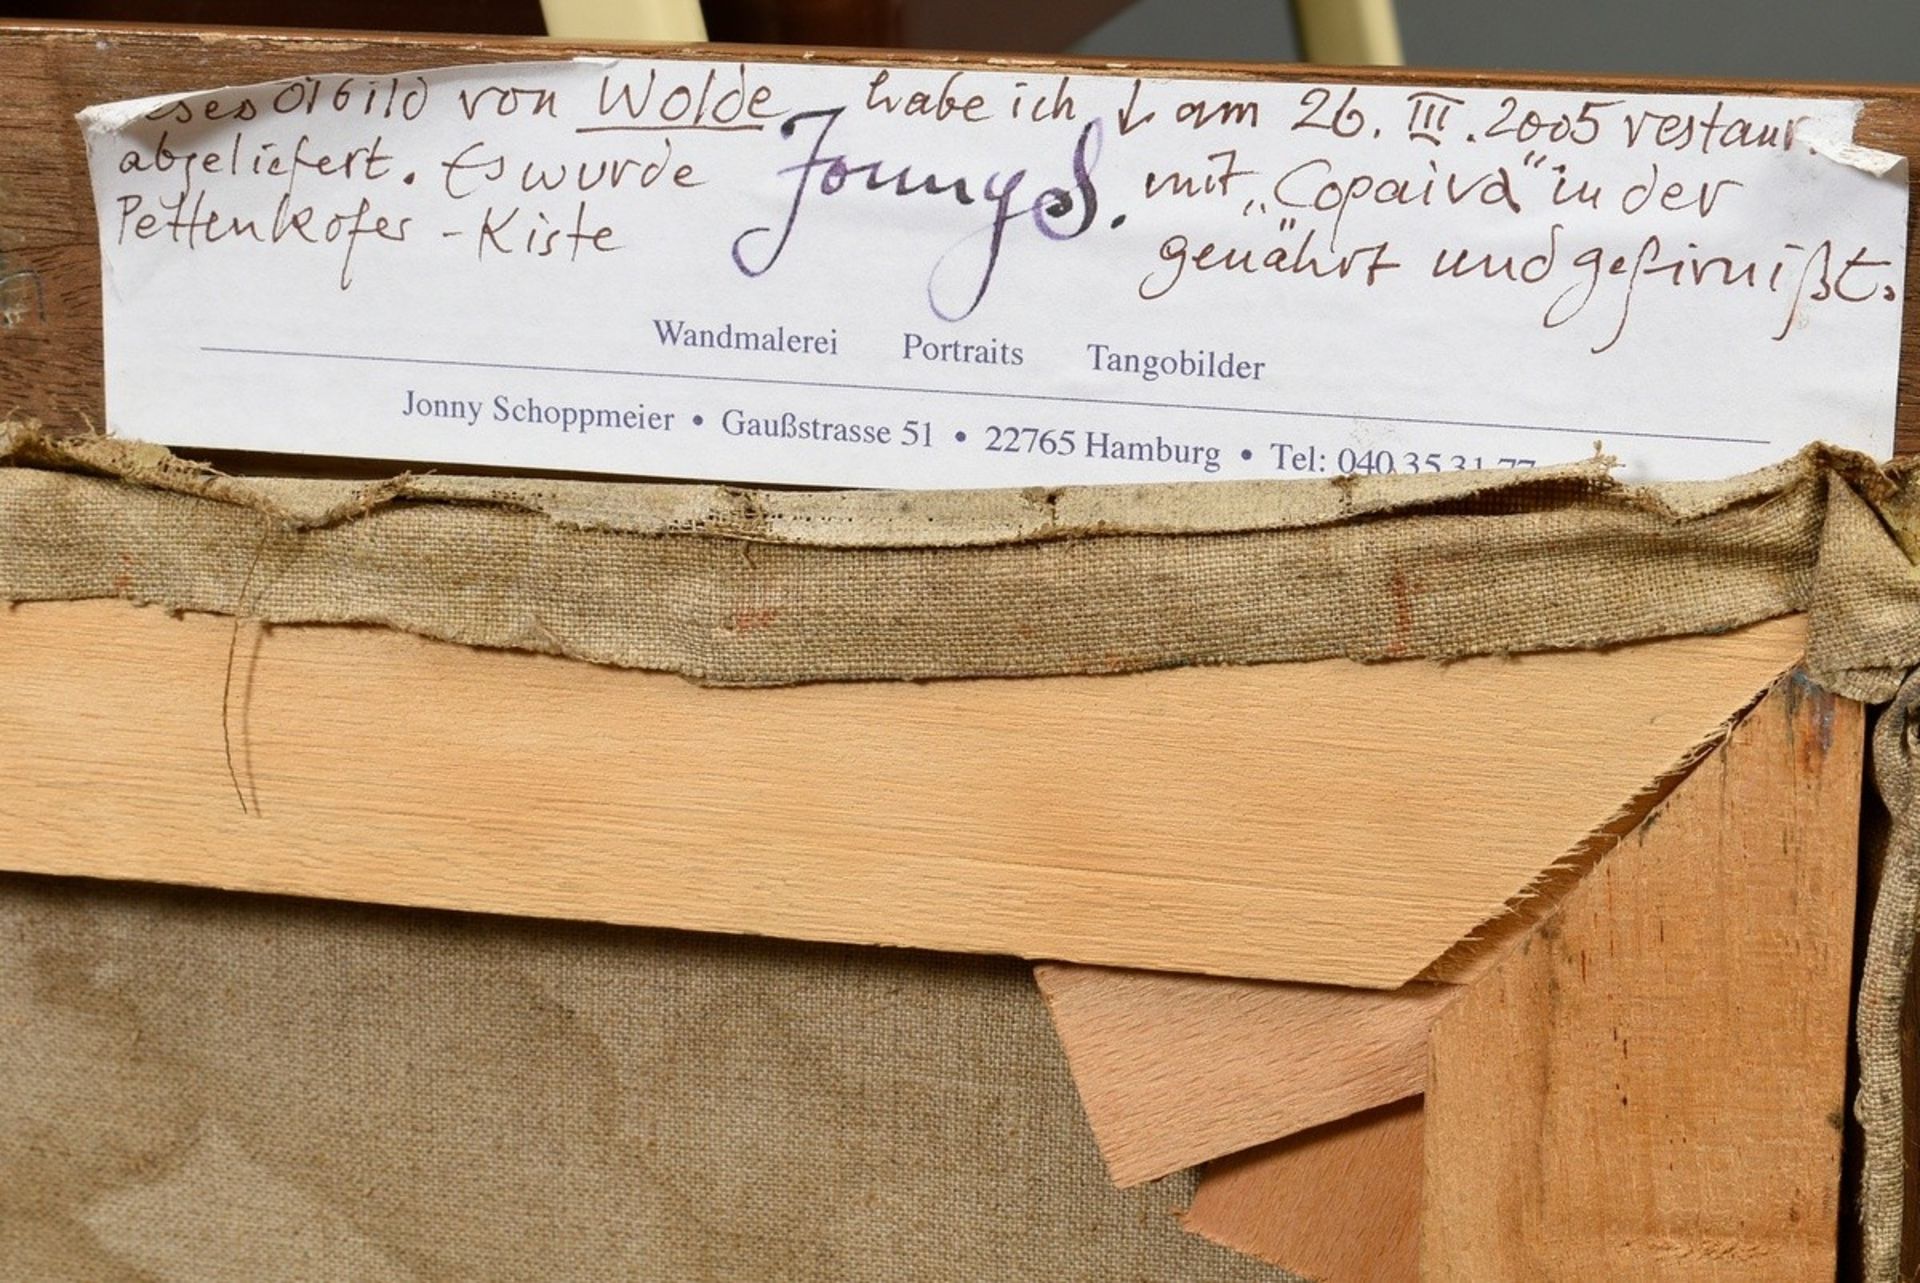 eses Ölbild von Wolde habe ich am 26. III. 2005 restaur.
abgeliefert. Es wurde Jonny S. mit „Copaiva“ in der
Pettenkofer - Kiste genährt und gefirnißt.
Wandmalerei Portraits Tangobilder
Jonny Schoppmeier • Gaußstrasse 51 • 22765 Hamburg • Tel: 040 35 31 77